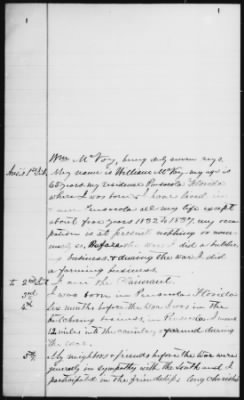 1
1
Wm McVoy, being duly sworn says.
Ans is 1st Int. My name is William McVoy my age is
60 years my residence Pensacola Florida
where I was born & I have lived in
near Pensacola all my life except
about five years 1832 to 1837, my occu
pation is at present nothing or nom
inal, Before the war I did a butcher
business & during the war I did
a farming business
to 2nd Int I am the Claimant.
3rd I was born in Pensacola Florida
4th Few months before the War I was in the
butchering business, in Pensacola I moved
12 miles into the country & farmed during
the war.
5th My neighbors & friends before the war were
generally in sympathy with the South and I
participated in the friendships long cherished